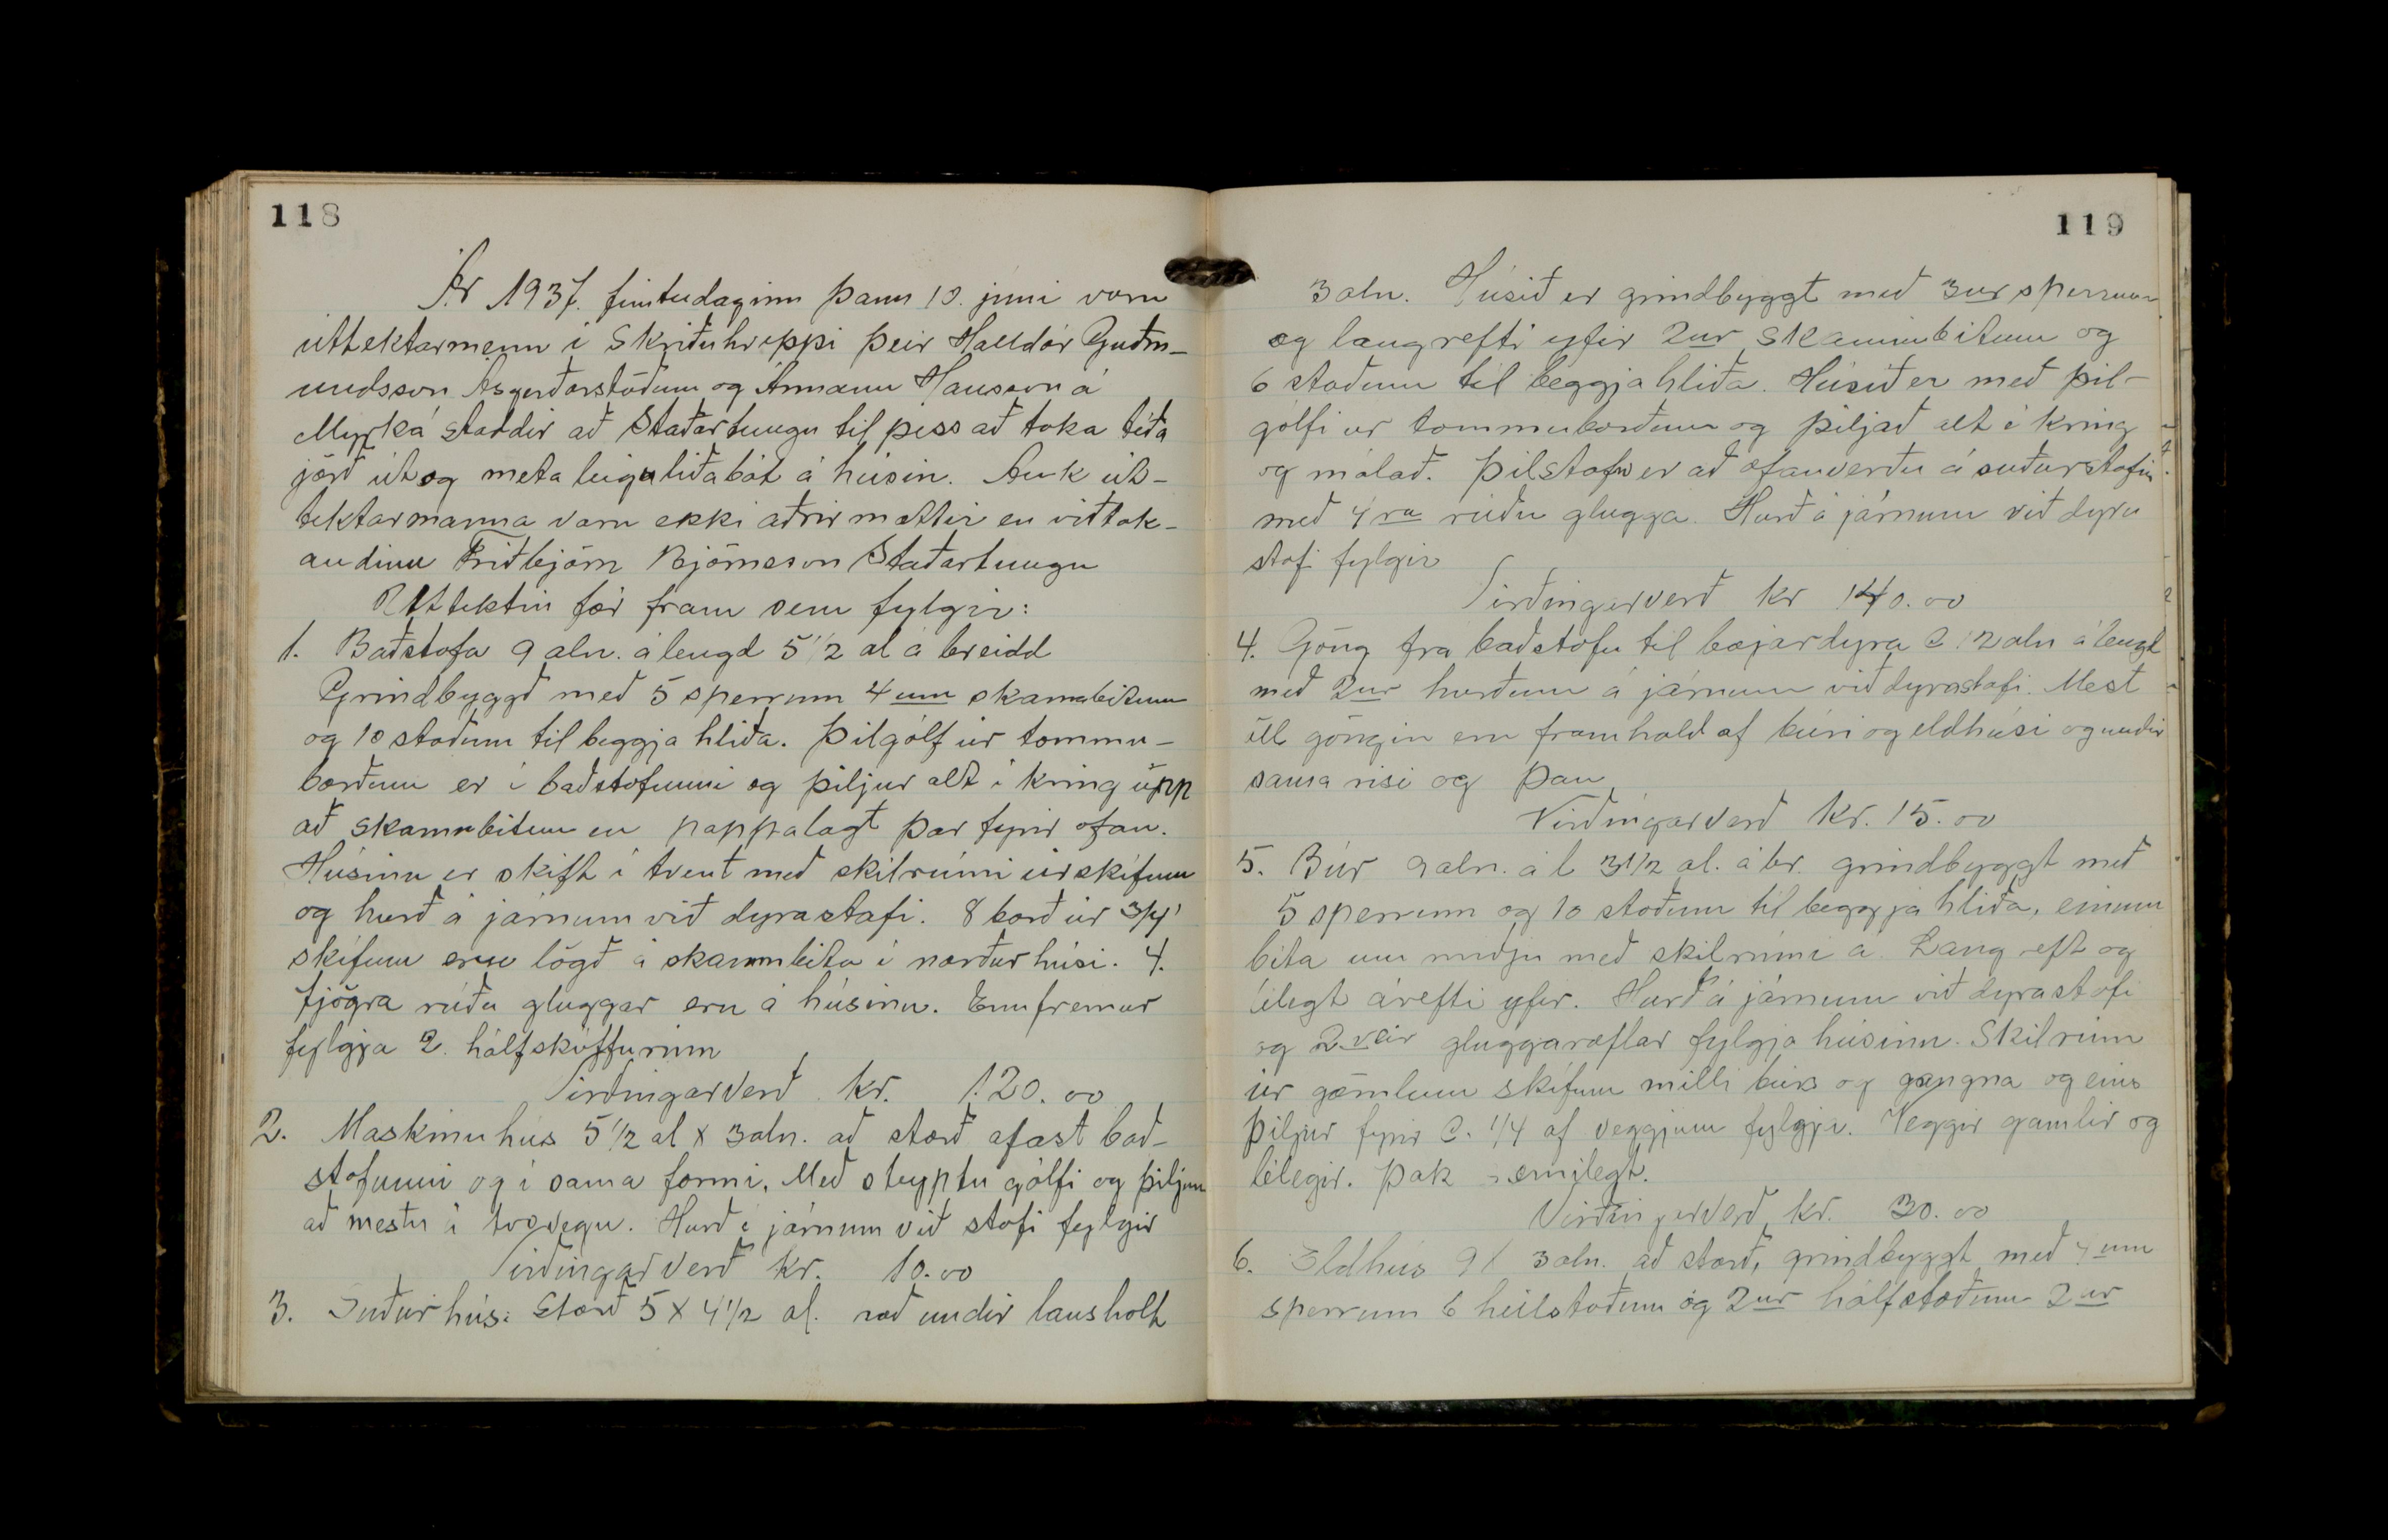 118
Ár 1937. fimtudaginn þann 10. júni voru
úttektarmenn í Skriðuhreppi þeir Halldór Guðm-
undsson Ásgerðarstöðum og Ármann Hansson á
Myrká staddir að Staðartungu til þess að taka téða
jörð út og meta leiguliðabót á húsin. Auk út-
tektarmanna voru ekki aðrir mættir en viðtak-
andinn Friðbjörn Björnsson Staðartungu
Úttektin fór fram sem fylgir:
1. Baðstofa 9 aln. á lengd 5 1/2 al á breidd
Grindbyggð með 5 sperrum 4 um skammbitum
og 10 stoðum til beggja hliða. Þilgólf úr tommu-
borðum er í baðstofunni og þiljur alt í kring upp
að skammbitum en pappalagt þar fyrir ofan.
Húsinu er skift í tvent með skilrúmi úr skífum
og hurð á járnum við dyrastafi. 8 borð úr 3/4"
skífum eru lögð á skammbita í norðurhúsi. 4.
fjögra rúðu gluggar eru á húsinu. Ennfremur
fylgja 2. hálfskúffurúm
Virðingarverð kr. 120.00
2. Maskinuhús 5 1/2 al x 3 aln. að stærð áfast bað-
stofunni og í sama formi. Með steyptu gólfi og þiljum
að mestu á tvo vegu. Hurð á járnum við stafi fylgir
Virðingarverð kr. 10.00
3. Suðurhús: Stærð 5 x 4 1/2 al. það undir lausholt
119
3 aln. Húsið er grindbyggt með 3ur sperrum
og langrefti yfir 2ur skammbitum og
6 stoðum til beggja hliða. Húsið er með þil-
gólfi úr tommuborðum og þiljað alt í kring
og málað. Þilstafn er að ofanverðu á suðurstafni
með 4ra rúðu glugga. Hurð á járnum við dyru
stafi fylgir
Virðingarverð kr 140.00
4. Göng frá baðstofu til bæjardyra C 12 aln á lengd
með 2ur hurðum á járnum við dyrastafi. Mest
öll göngin eru framhald af búri og eldhúsi og undir
sama risi og þau
Virðingarverð kr. 15.00
5. Búr 9 aln. á l 3 1/2 al. á br. grindbyggt með
5 sperrum og 10 stoðum til beggja hliða, einum
bita um miðju með skilrúmi á. Langreft og
lélegt árefti yfir. Hurð á járnum við dyrastafi
og 2veir gluggaræflar fylgja húsinu. Skilrúm
úr gömlum skífum milli búrs og gangna og eins
þiljur fyrir C. 1/4 af veggjum fylgja. Veggir gamlir og
lélegir. Þak sæmilegt.
Virðingarverð kr. 30.00
6. Eldhús 9 x 3 aln. að stærð, grindbyggt með 4 um
sperrum 6 heilstoðum og 2ur hálfstoðum 2ur